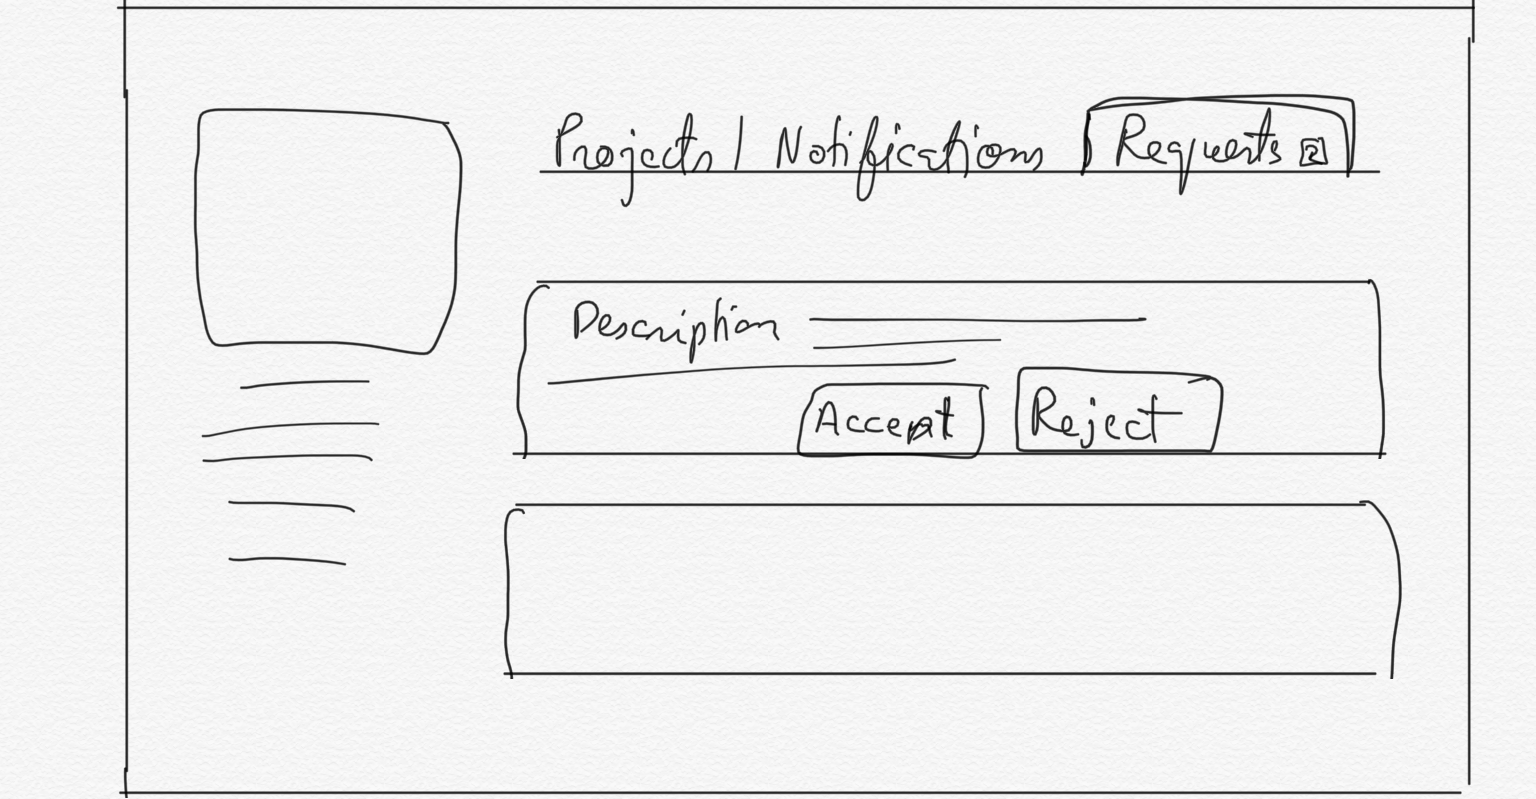 Projects | Notifications Requests 2
Description
Accept Reject